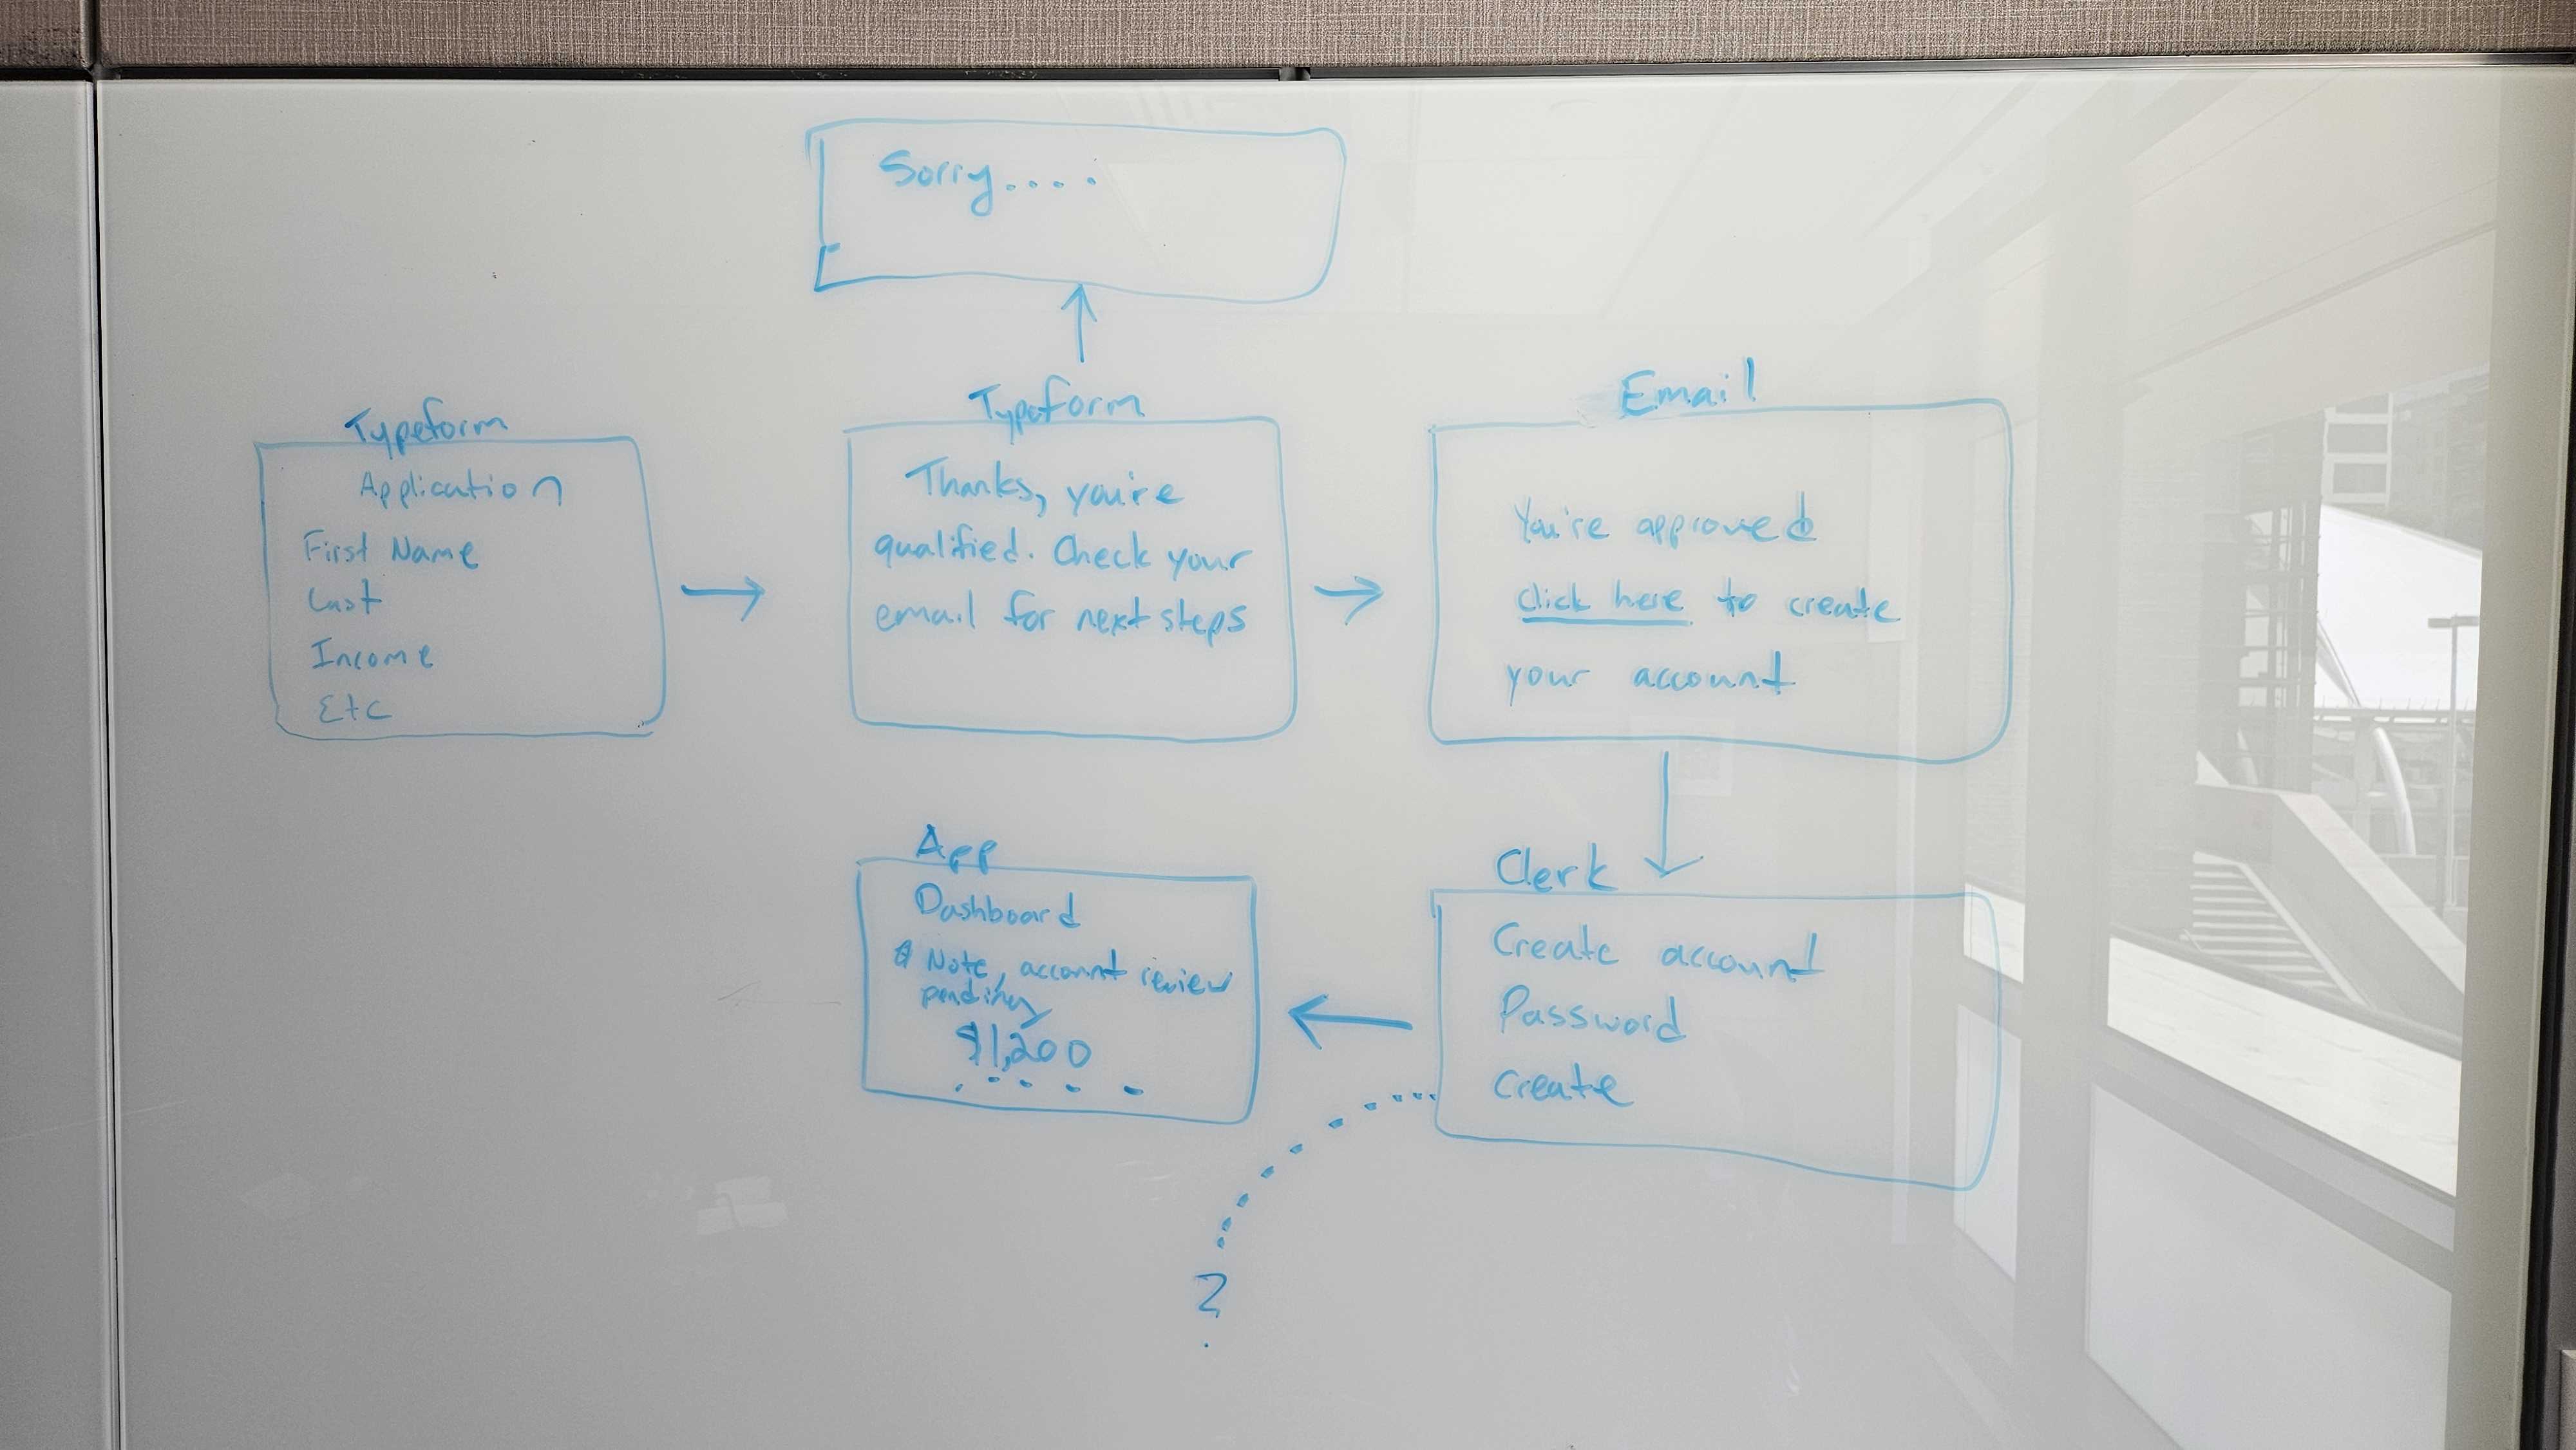 Sorry....
Typeform
Application
First Name
Last
Income
Etc
Typeform
Thanks, you're
qualified. Check your
email for next steps
Email
You're approved
click here to create
your account
Clerk
Create account
Password
create
App
Dashboard
Note, account review
pending
$1,200
?